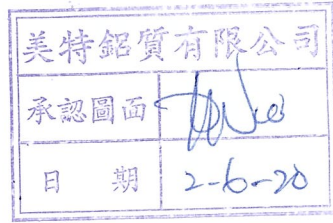 美特鋁質有限公司
承認圖面
日 期 2-6-20